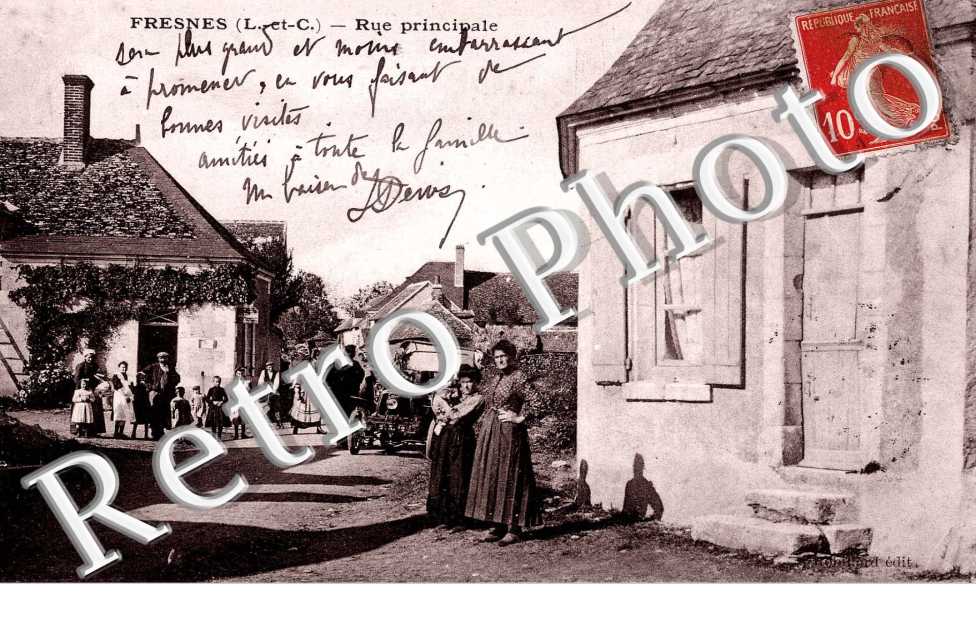 FRESNES (L.-et-C.) — Rue principale
sera plus grand et moins embarrassant
à promener, en vous faisant de
bonnes visites.
amitiés à toute la famille.
Un baiser de
RÉPUBLIQUE FRANÇAISE
10
Retro Photo
édit.